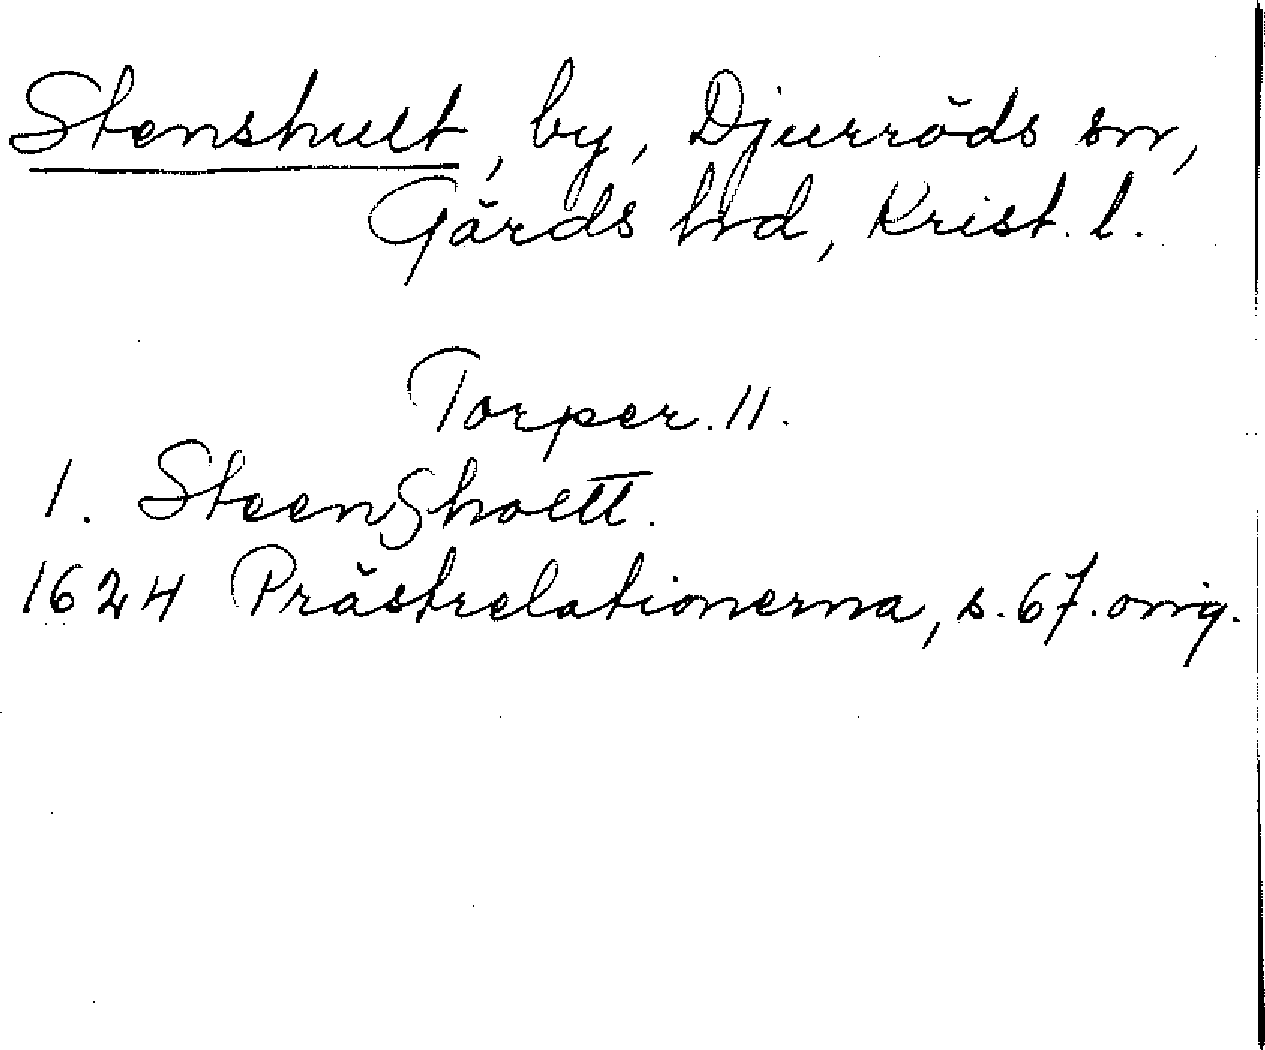 Stenshult, by, Djurröds sn,
Gärds hrd, Krist. l.
Torper. 11.
1. Steensholtt.
1624 Prästrelationerna, s. 67. orig.